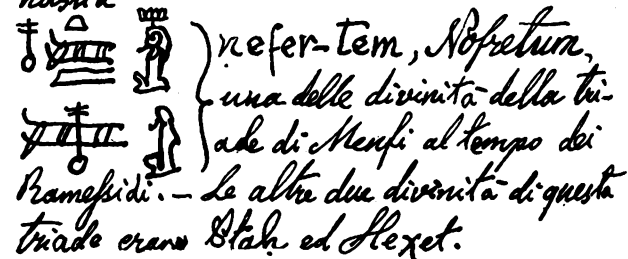 nefer-tem, Nofretum,
una delle divinità della tri-
ade di Menfi al tempo dei
Ramessidi. — Le altre due divinità di questa
triade erano Ptah ed Hexet.